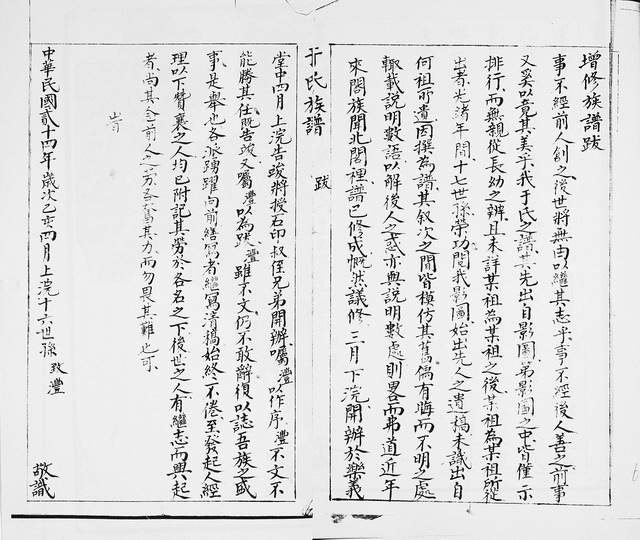 增修族譜跋
事不經前人創之後世將無由以繼其志乎事不經後人善之前事
又奚以竟其美乎我于氏之譜其先出自影圖弟影圖之中皆僅示
排行而無親從長幼之辨且未詳某祖為某祖之後某祖為某祖所從
出者光緒年間十七世孫宗功閱我影圖始出先人之遺稿未識出自
何祖所遺因撰為譜其叙次之間皆模仿其舊偶有晦而不明之處
輙載說明數語以解後人之惑亦與說明數處則畧而弗道近年
來閤族聞北閣裡譜已修成慨然議修三月下浣開辦於樂義
于氏族譜 跋
堂中四月上浣告竣將授石印叔侄兄弟開辦囑灃以作序灃不文不
能勝其任既告竣又囑灃以為跋灃雖不文仍不敢辭復以誌吾族之盛
事是舉也各派踴躍向前繕寫者繼寫清稿始終不倦至發起人經
理以下贊襄之人均已附記其勞於各名之下後世之人有繼志而興起
者尚其念前人之勞各奮其力而勿畏其難也可
旹
中華民國貳十四年歲次乙亥四月上浣十六世孫 致灃 敬識